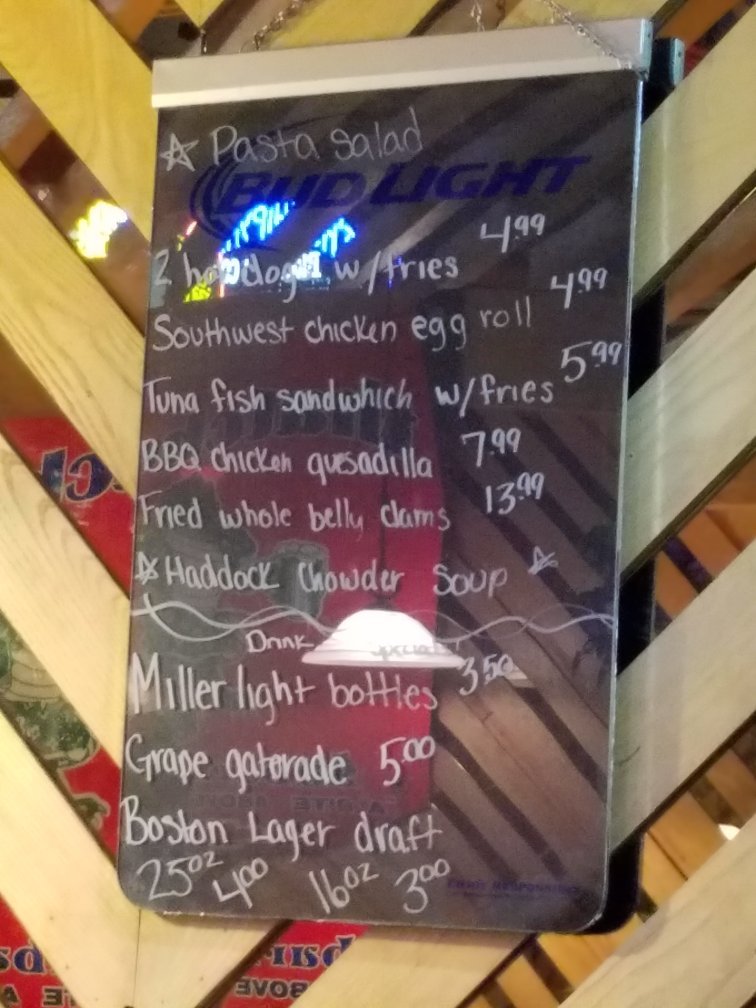 ☆ Pasta Salad
BUD LIGHT
4.99
2 hot dogs w/fries
4.99
Southwest chicken egg roll
5.99
Tuna fish sandwhich w/fries
BBQ chicken qusadilla 7.99
Fried whole belly clams 13.99
☆ Haddock Chowder Soup ☆
Drink Specials
Miller light bottles 3.50
Grape gatorade 5.00
Boston Lager draft
25oz 4.00 16oz 3.00